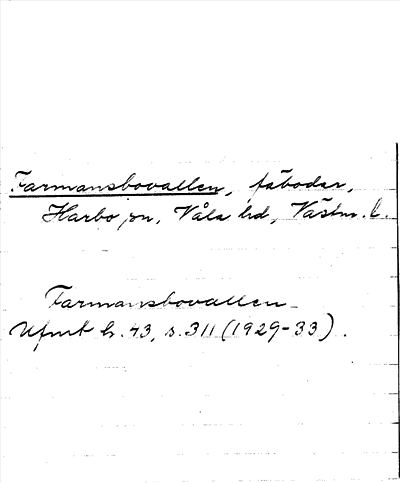 Farmansbovallen, fäbodar,
Harbo sn, Våla hd, Västm. l.
Farmansbovallen
Ufmt h. 43, s. 311 (1929-33).